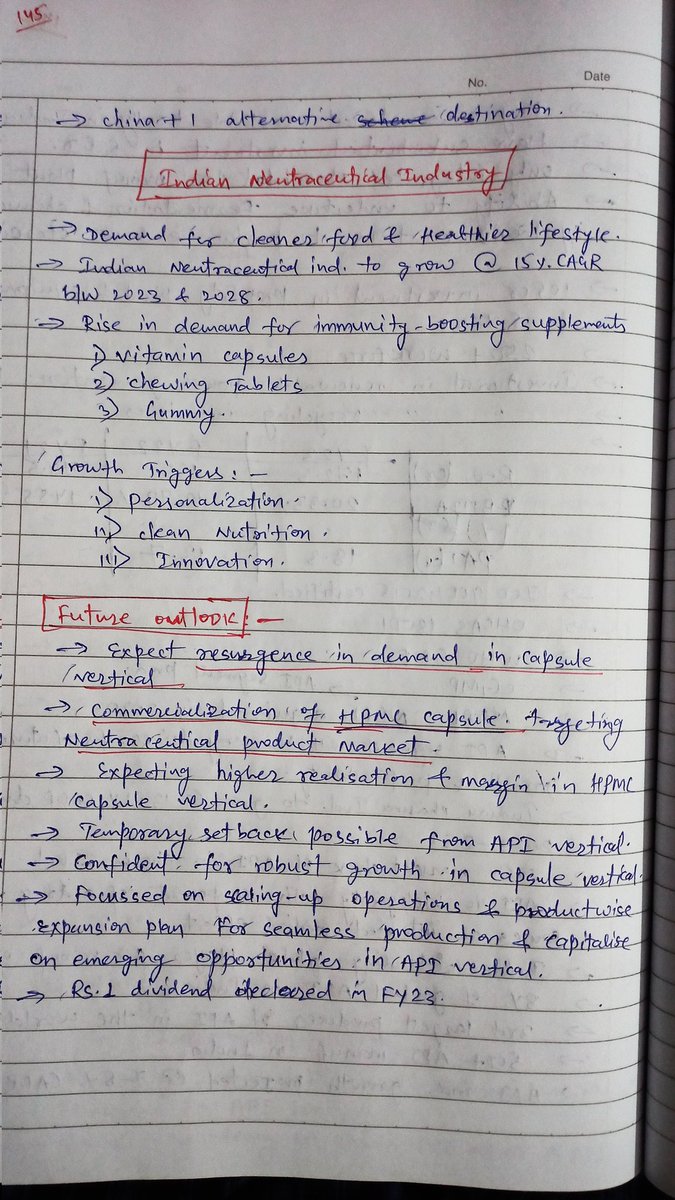 145
No.
Date
→ China + 1 alternative scheme destination.
Indian Neutraceutical Industry
→ Demand for cleaner food & Healthier lifestyle.
→ Indian Neutraceutical ind. to grow @ 15%. CAGR
b/w 2023 & 2028.
→ Rise in demand for immunity-boosting supplements
1) Vitamin capsules
2) chewing Tablets
3) Gummy.
Growth Triggers: -
i) Personalization.
ii) clean Nutrition.
iii) Innovation.
Future outlook: -
→ Expect resurgence in demand in capsule
vertical
→ Commercialization of HPMC capsule. Targeting
Neutraceutical product market.
→ Expecting higher realisation & margin in HPMC
capsule vertical.
→ Temporary setback possible from API vertical.
→ Confident for robust growth in capsule vertical.
→ Focussed on scaling-up operations & productwise
expansion plan for seamless production & capitalise
on emerging opportunities in API vertical.
→ Rs.1 dividend declared in FY23.